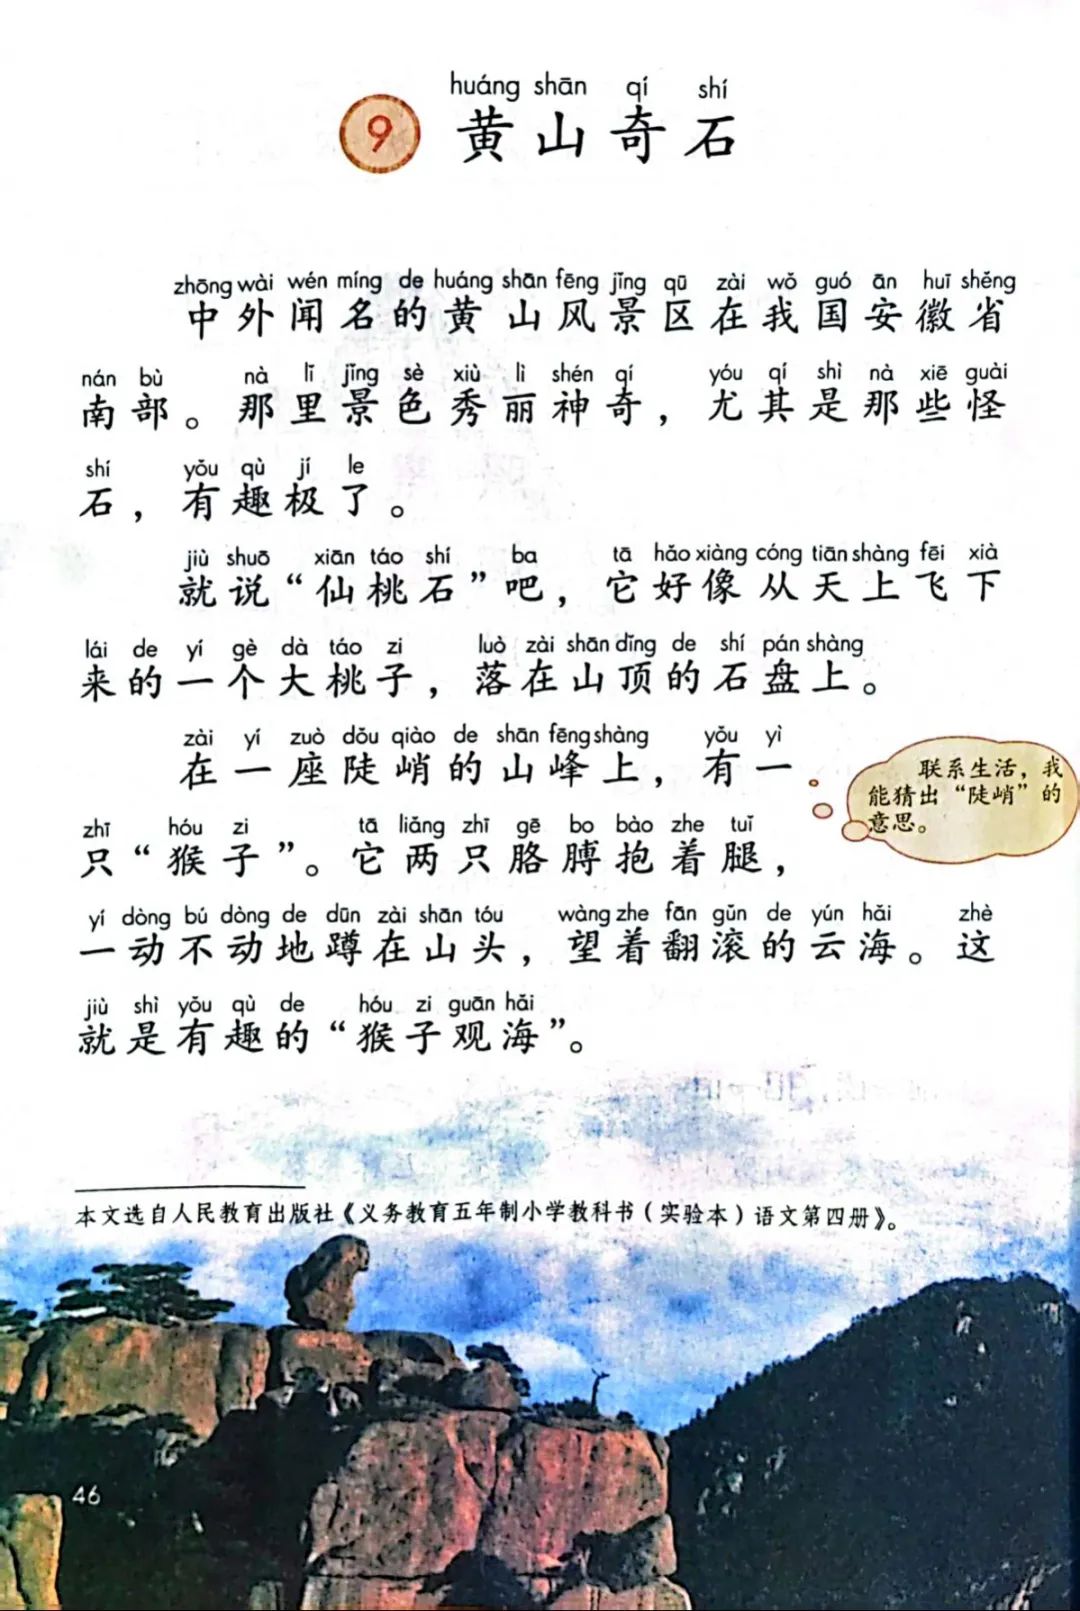 huáng shān qí shí
9 黄山奇石
zhōng wài wén míng de huáng shān fēng jǐng qū zài wǒ guó ān huī shěng
中外闻名的黄山风景区在我国安徽省
nán bù nà lǐ jǐng sè xiù lì shén qí yóu qí shì nà xiē guài
南部。那里景色秀丽神奇，尤其是那些怪
shí yǒu qù jí le
石，有趣极了。
jiù shuō xiān táo shí ba tā hǎo xiàng cóng tiān shàng fēi xià
就说“仙桃石”吧，它好像从天上飞下
lái de yí gè dà táo zi luò zài shān dǐng de shí pán shàng
来的一个大桃子，落在山顶的石盘上。
zài yí zuò dǒu qiào de shān fēng shàng yǒu yì
在一座陡峭的山峰上，有一
联系生活，我
能猜出“陡峭”的
意思。
zhī hóu zi tā liǎng zhī gē bo bào zhe tuǐ
只“猴子”。它两只胳膊抱着腿，
yí dòng bú dòng de dūn zài shān tóu wàng zhe fān gǔn de yún hǎi zhè
一动不动地蹲在山头，望着翻滚的云海。这
jiù shì yǒu qù de hóu zi guān hǎi
就是有趣的“猴子观海”。
本文选自人民教育出版社《义务教育五年制小学教科书（实验本）语文第四册》。
46